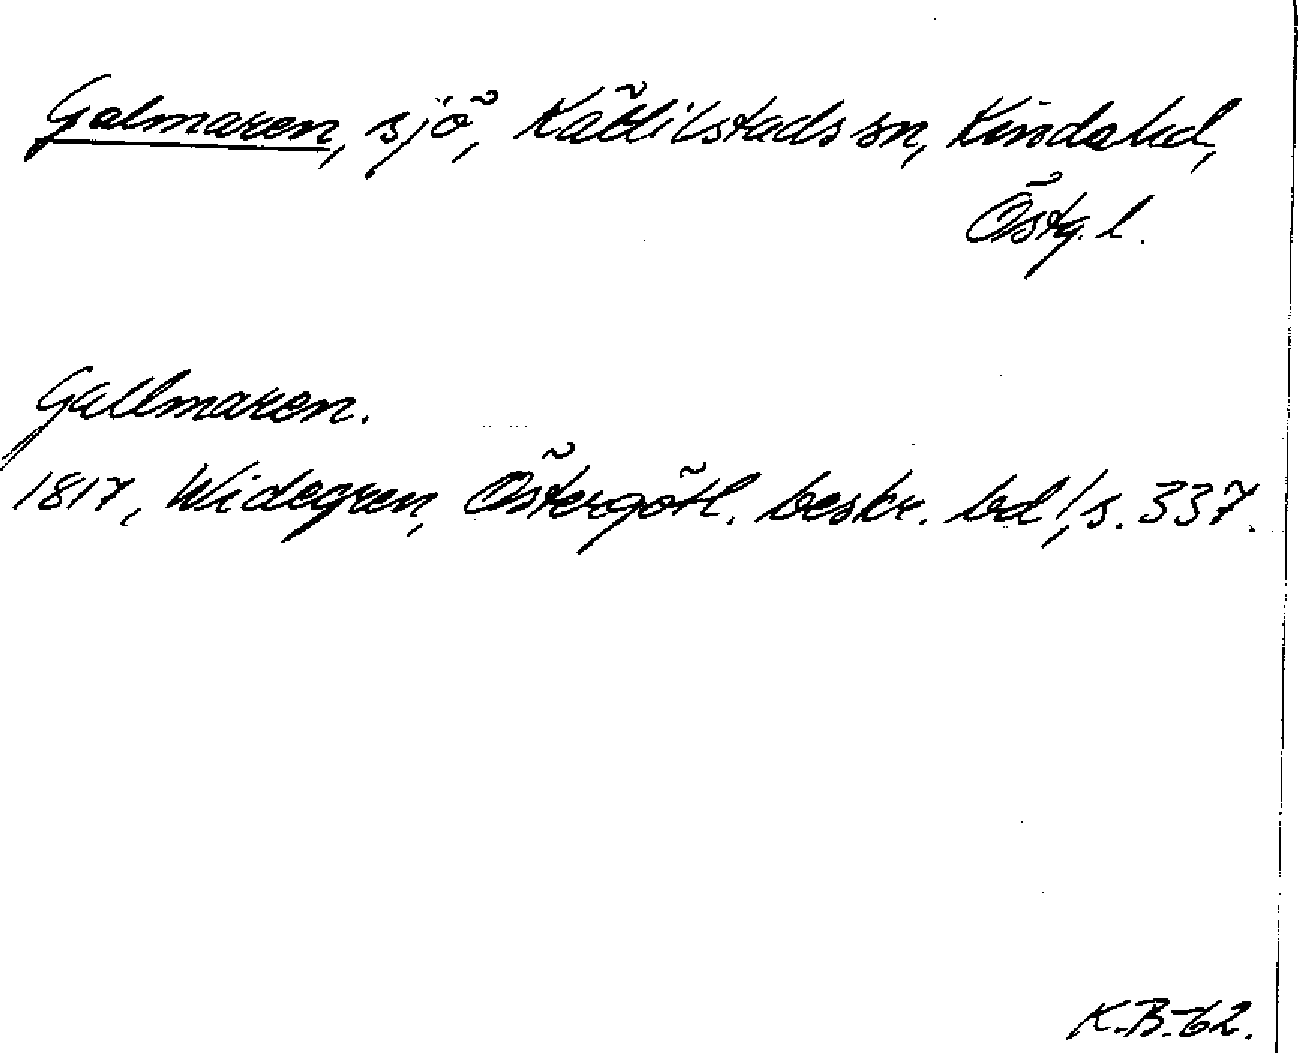 Galmaren, sjö, Kättilstads sn, Kinda hd,
Östg. l.
Gallmaren.
1817, Widegren, Östergötl. beskr. bd 1, s. 337.
K.B.-62.